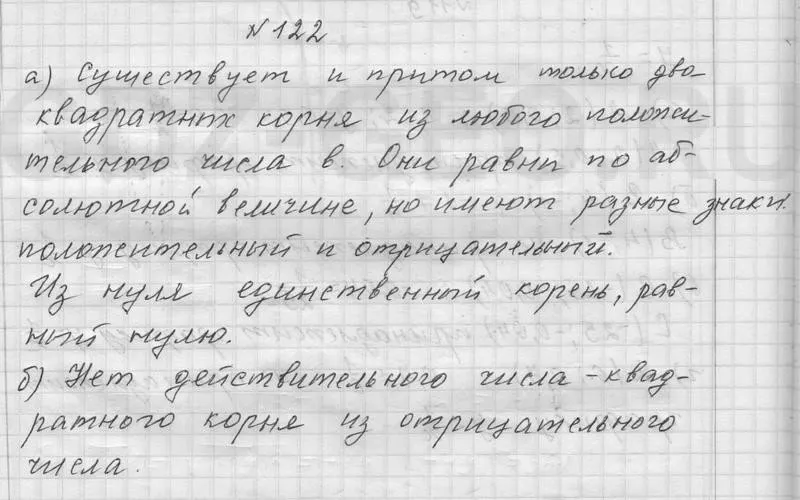 №122
а) Существует и притом только два
квадратных корня из любого положи-
тельного числа в. Они равны по аб-
солютной величине, но имеют разные знаки.
положительный и отрицательный.
Из нуля единственный корень, рав-
ный нулю.
б) Нет действительного числа - квад-
ратного корня из отрицательного
числа.